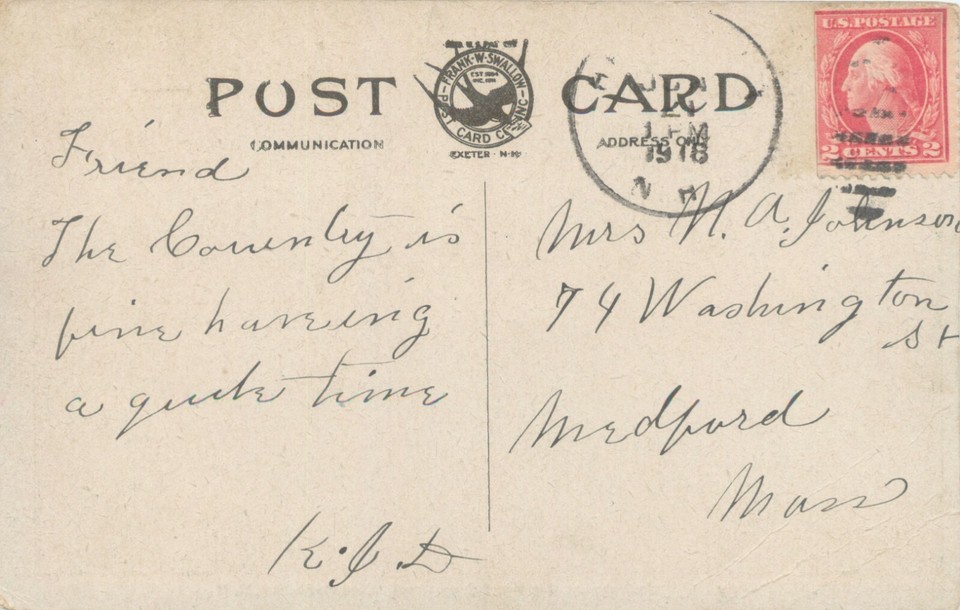 POST CARD
FRANK·W·SWALLOW
POST CARD CO. INC.
EXETER - N·H·
COMMUNICATION
ADDRESS ONLY
JUN
1 PM
1918
N. H.
U.S. POSTAGE
2 CENTS 2
Friend
The Country is
fine haveing
a quite time
K.J.D
Mrs N. A. Johnson
74 Washington
St
Medford
Mass